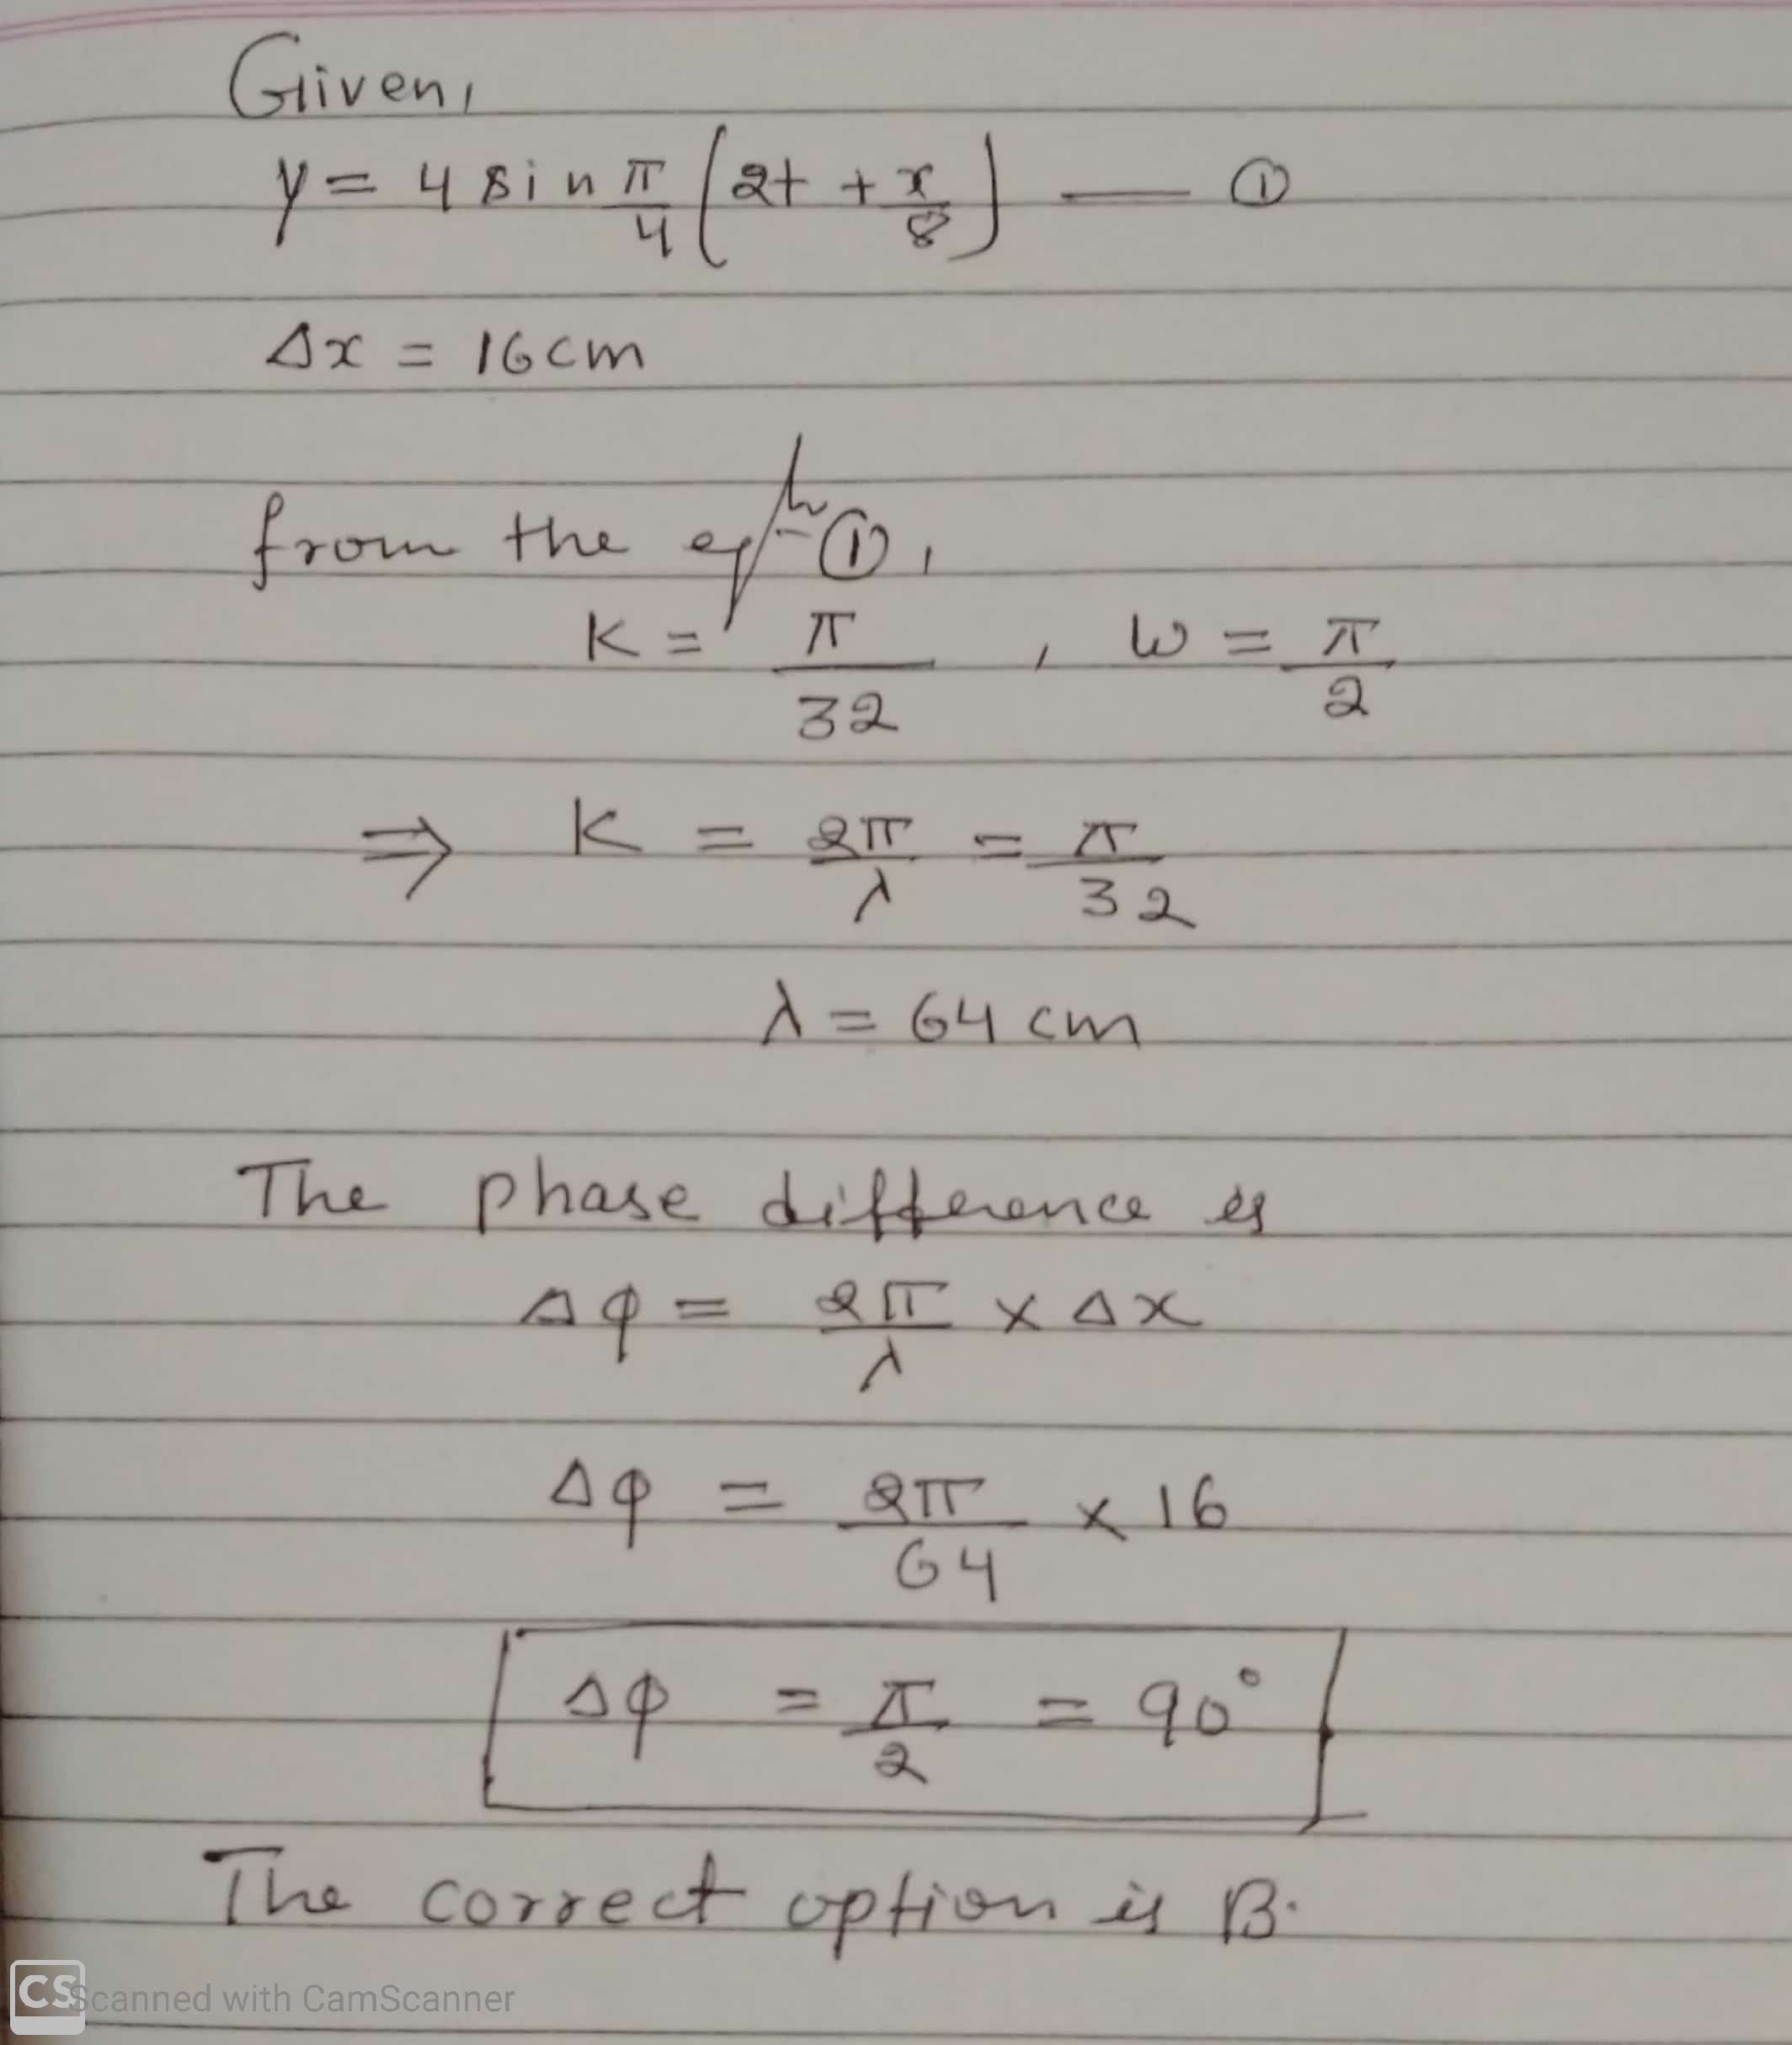 Given,
y = 4 sin π/4 (2t + x/8) — ①
Δx = 16cm
from the eqn ①,
K = π/32 , ω = π/2
⇒ K = 2π/λ = π/32
λ = 64 cm
The phase difference is
Δφ = 2π/λ × Δx
Δφ = 2π/64 × 16
Δφ = π/2 = 90°
The correct option is B.
CS Scanned with CamScanner